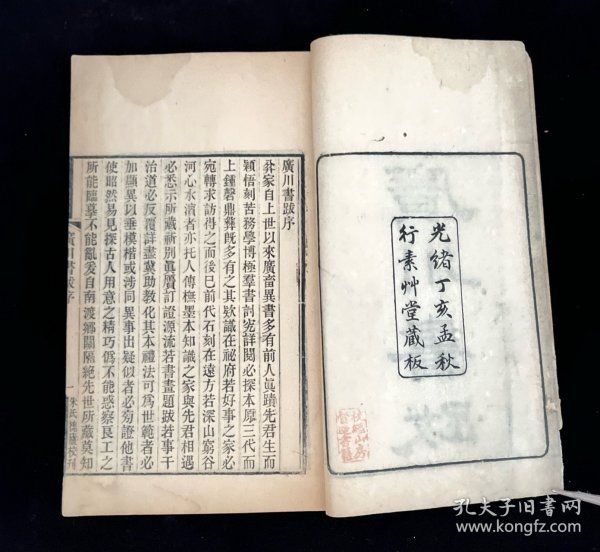 光緒丁亥孟秋
行素艸堂藏板
廣川書跋序
弅家自上世以來廣畜異書多有前人眞蹟先君生而
穎悟刻苦務學博極羣書討究詳閱必探本原三代而
上鍾磬鼎彝旣多有之其欵識在祕府若好事之家必
宛轉求訪得之而後已前代石刻在遠方若深山窮谷
河心水濱者亦托人傳橅墨本知識之家與先君相遇
必悉示所藏祈別眞贋訂證源流若書畫題跋若事干
治道必反覆詳盡冀助教化其本禮法可爲世範者必
加顯異以垂模楷或涉同異事出疑似者必旁證他書
使昭然易見探古人用意之精巧僞不能惑察良工之
所能臨摹不能亂爰自南渡鄉關隔絶先世所藏莫知
廣川書跋序
一
朱氏槐廬校刊
孔夫子旧书网
www.kongfz.com